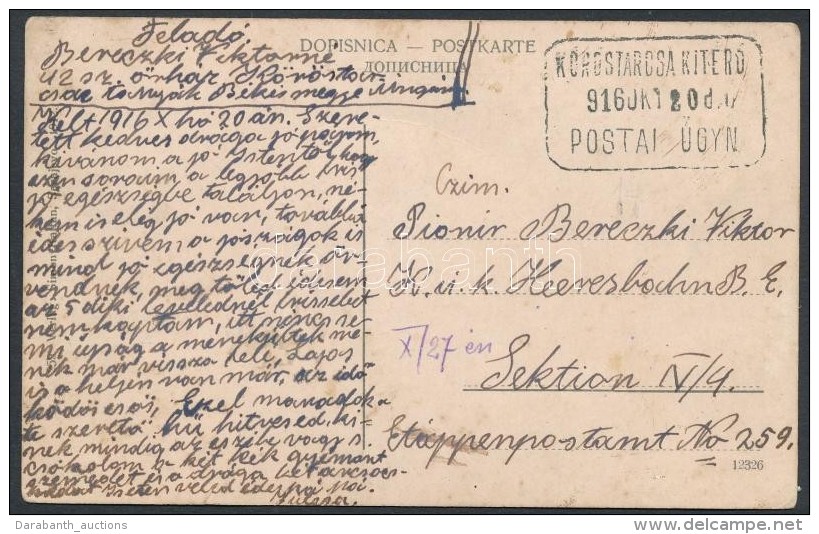 Feladó
Bereczki Viktorné
42 sz. őrház Köröstar-
csai tanyák Békésmegye Ungarn.
Kelt 1916 X hó 20 án. Szere-
tett kedves drága jó párom,
kivánom a jó Istentől hogy
ezen soraim a legjobb friss
jó egészségbe találjon, né-
kem is elég jó van, továbbá
édes szivem a jószágok is
mind jó egészségnek ör-
vendnek, még tőled édesem
az 5 diki levelednél frissebet
nem kaptam, itt nincs se-
mi újság a menekültek me-
nek már vissza felé, Lajos
is a helyén van már, az idő
ködös esős, Ezzel maradok a
te szerető hű hitvesed, ki-
nek mindig az eszébe vagy s
csókolom a két kék gyémánt
szemedet és a drága
Isten veled édes pá pá.
DOPISNICA — POSTKARTE
ДОПИСНИЦА
KÖRÖSTARCSA KITÉRŐ
916 OKT 20 d.u
POSTAI ÜGYN.
Czim.
Pionir Bereczki Viktor
K. u. k. Heeresbahn B. E.
X/27 én
Sektion IV/4.
Etappenpostamt No 259.
12326
Darabanth
Darabanth_auctions
www.delcampe.net